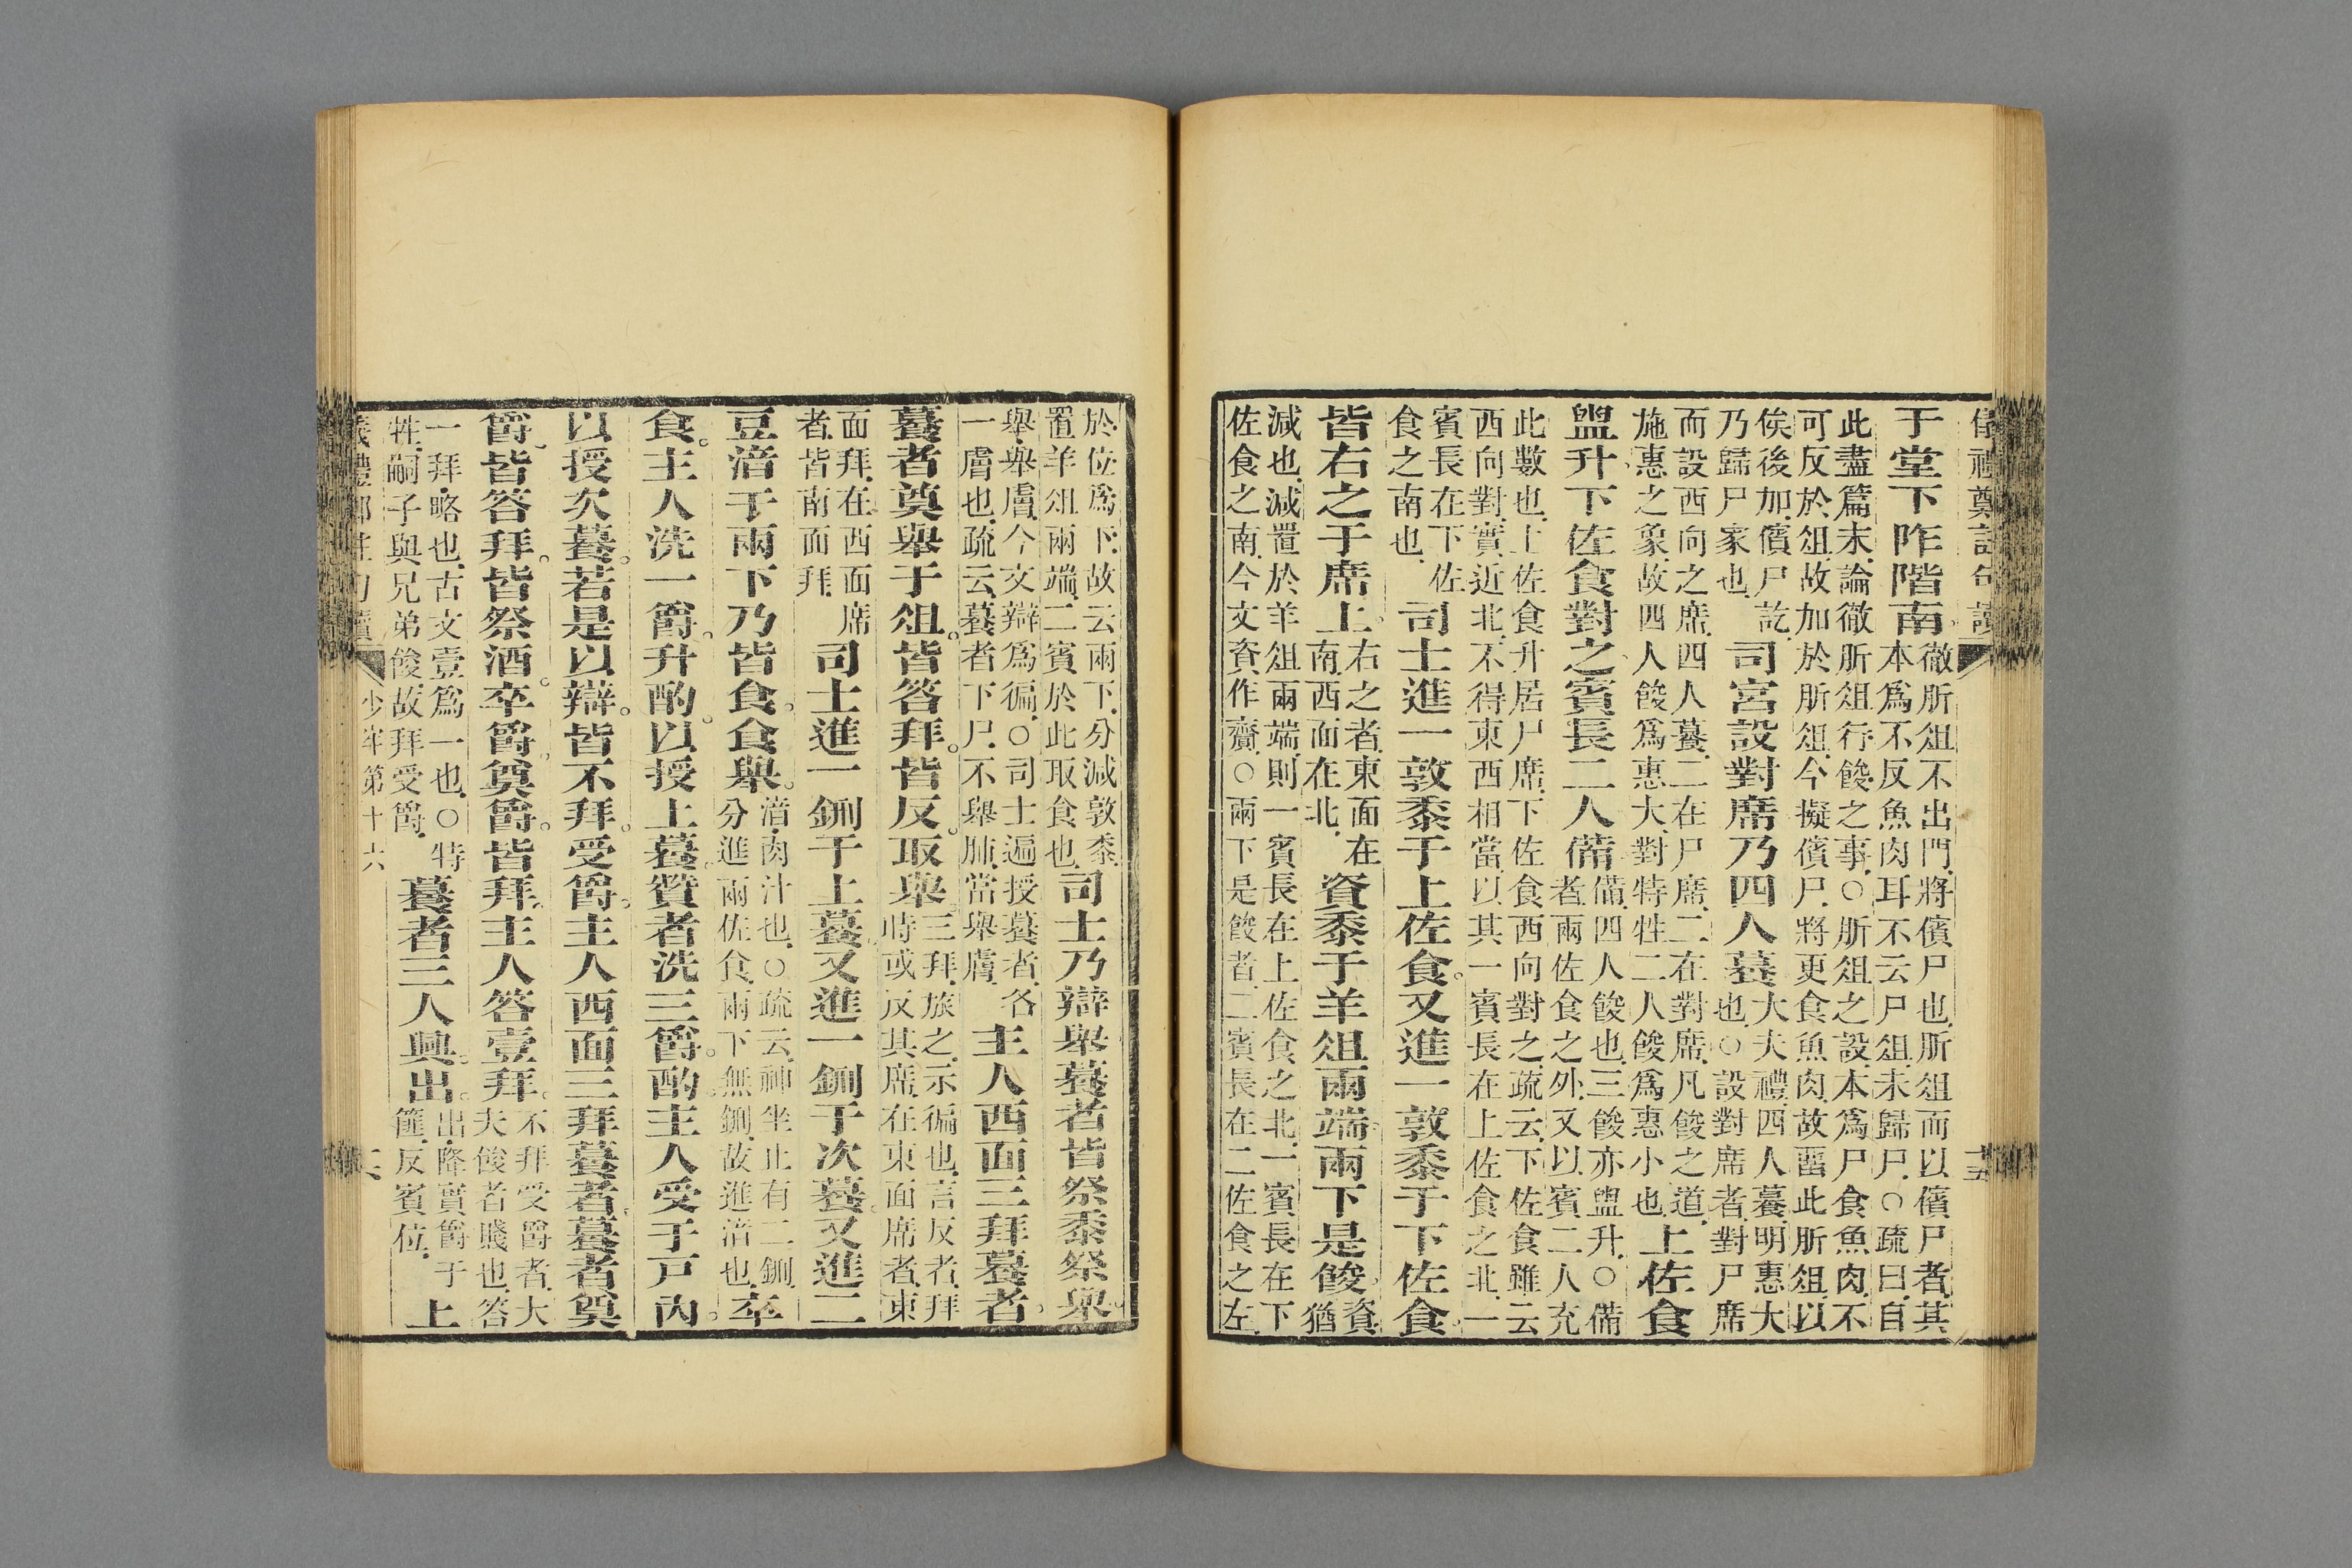 儀禮鄭註句讀　十五
于堂下阼階南。徹肵俎不出門，將儐尸也，肵俎而以儐尸者，其
本爲不反魚肉耳，不云尸俎，未歸尸。○疏曰，自
此盡篇末，論徹肵俎行餕之事。○肵俎之設，本爲尸食魚肉，不
可反於俎，故加於肵俎，今擬儐尸，將更食魚肉，故畱此肵俎，以
俟後加，儐尸訖，
乃歸尸家也。司宮設對席乃四人䉵大夫禮，四人䉵，明惠大
也。○設對席者，對尸席
而設西向之席，四人䉵，二在尸席，二在對席，凡餕之道，
施惠之象，故四人餕爲惠大，對特牲二人餕爲惠小也。上佐食
盥升，下佐食對之，賓長二人僃備四人餕也，三餕亦盥升。○備
者，兩佐食之外，又以賓二人充
此數也，上佐食升居尸席，下佐食西向對之，疏云，下佐食雖云
西向對，實近北，不得東西相當，以其一賓長在上佐食之北，一
賓長在下佐
食之南也。司士進一敦黍于上佐食。又進一敦黍于下佐食。
皆右之于席上。右之者，東面在
南，西面在北。資黍于羊俎兩端，兩下是餕。資
猶
減也，減置於羊俎兩端，則一賓長在上佐食之北，一賓長在下
佐食之南，今文資作齎。○兩下是餕者，二賓長在二佐食之左，
於位爲下，故云兩下，分減敦黍，
置羊俎兩端，二賓於此取食也。司士乃辯舉䉵者皆祭黍祭舉。
舉，舉膚，今文辯爲徧。○司士遍授䉵者，各
一膚也，疏云，䉵者下尸，不舉肺，當舉膚。主人西面三拜䉵者。
䉵者奠舉于俎。皆答拜。皆反取舉。三拜，旅之，示徧也，言反者，拜
時或反其席，在東面席者，東
面拜，在西面席
者，皆南面拜。司士進一鉶于上䉵。又進一鉶于次䉵。又進二
豆湆于兩下。乃皆食。食舉。湆，肉汁也。○疏云，神坐止有二鉶，
分進兩佐食，兩下無鉶，故進湆也。卒
食。主人洗一爵。升酌。以授上䉵。贊者洗三爵。酌。主人受于戶內。
以授次䉵。若是以辯。皆不拜。受爵。主人西面三拜䉵者。䉵者奠
爵，皆答拜。皆祭酒。卒爵。奠爵。皆拜。主人答壹拜。不拜受爵者，大
夫餕者賤也，答
一拜，略也，古文壹爲一也。○特
牲，嗣子與兄弟餕，故拜受爵。䉵者三人興。出。出，降實爵于
篚，反賓位。上
少牢第十六